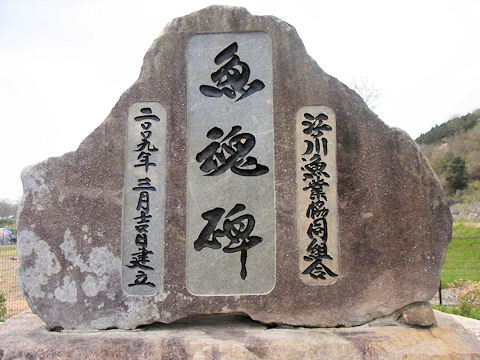 芦川漁業協同組合
魚魂碑
二〇〇九年三月吉日建立